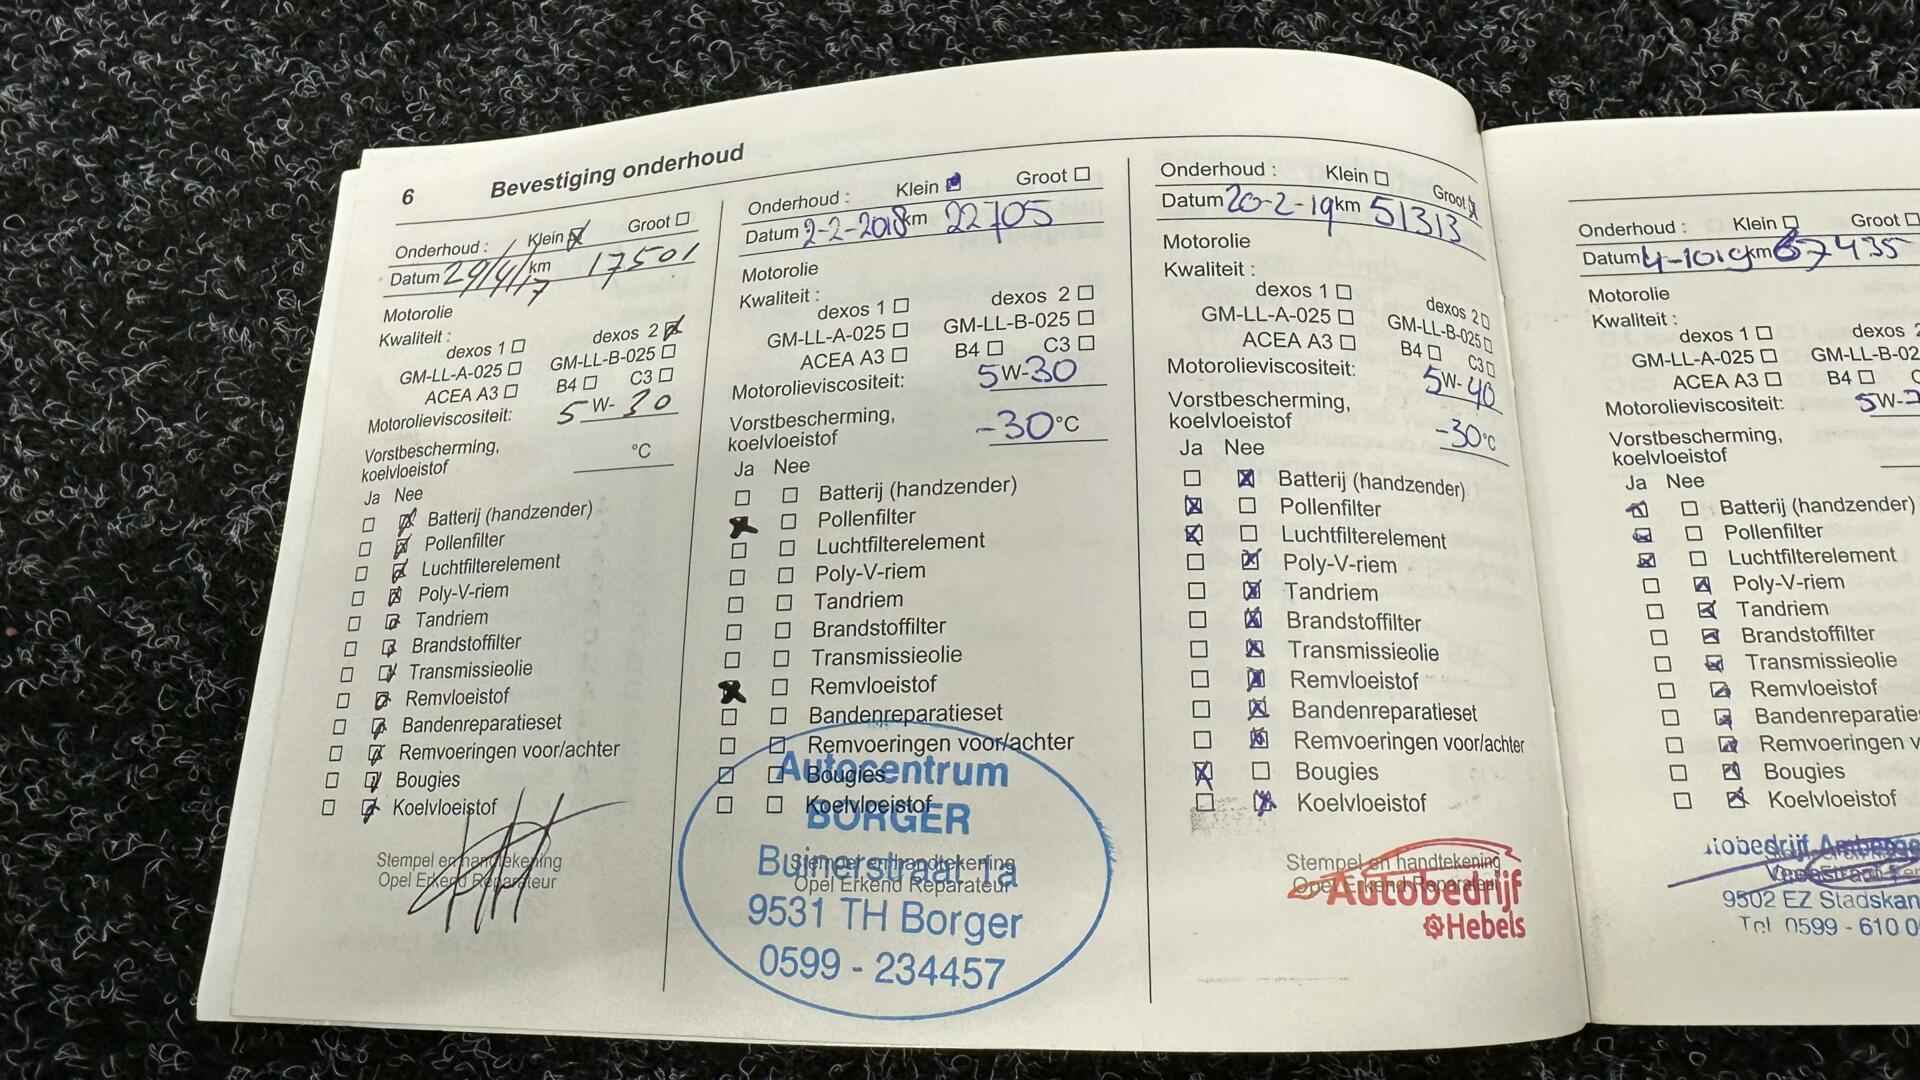 6 Bevestiging onderhoud
Onderhoud : Klein Groot
Datum 29/4/17 km 17501
Motorolie
Kwaliteit :
dexos 1 dexos 2
GM-LL-A-025 GM-LL-B-025
ACEA A3 B4 C3
Motorolieviscositeit: 5 W- 30
Vorstbescherming,
koelvloeistof °C
Ja Nee
Batterij (handzender)
Pollenfilter
Luchtfilterelement
Poly-V-riem
Tandriem
Brandstoffilter
Transmissieolie
Remvloeistof
Bandenreparatieset
Remvoeringen voor/achter
Bougies
Koelvloeistof
Stempel en handtekening
Opel Erkend Reparateur
Onderhoud : Klein Groot
Datum 2-2-2018 km 22705
Motorolie
Kwaliteit :
dexos 1 dexos 2
GM-LL-A-025 GM-LL-B-025
ACEA A3 B4 C3
Motorolieviscositeit: 5 W- 30
Vorstbescherming,
koelvloeistof -30 °C
Ja Nee
Batterij (handzender)
Pollenfilter
Luchtfilterelement
Poly-V-riem
Tandriem
Brandstoffilter
Transmissieolie
Remvloeistof
Bandenreparatieset
Remvoeringen voor/achter
Bougies
Koelvloeistof
Stempel en handtekening
Opel Erkend Reparateur
Autocentrum
BORGER
Buinerstraat 1a
9531 TH Borger
0599 - 234457
Onderhoud : Klein Groot
Datum 20-2-19 km 51313
Motorolie
Kwaliteit :
dexos 1 dexos 2
GM-LL-A-025 GM-LL-B-025
ACEA A3 B4 C3
Motorolieviscositeit: 5 W- 40
Vorstbescherming,
koelvloeistof -30 °C
Ja Nee
Batterij (handzender)
Pollenfilter
Luchtfilterelement
Poly-V-riem
Tandriem
Brandstoffilter
Transmissieolie
Remvloeistof
Bandenreparatieset
Remvoeringen voor/achter
Bougies
Koelvloeistof
Stempel en handtekening
Opel Erkend Reparateur
Autobedrijf
Hebels
Onderhoud : Klein Groot
Datum km 67435
Motorolie
Kwaliteit :
dexos 1 dexos
GM-LL-A-025 GM-LL-B-02
ACEA A3 B4 C
Motorolieviscositeit: 5 W-
Vorstbescherming,
koelvloeistof
Ja Nee
Batterij (handzender)
Pollenfilter
Luchtfilterelement
Poly-V-riem
Tandriem
Brandstoffilter
Transmissieolie
Remvloeistof
Bandenreparatie
Remvoeringen v
Bougies
Koelvloeistof
9502 EZ Stadskan
Tel 0599 - 610 0